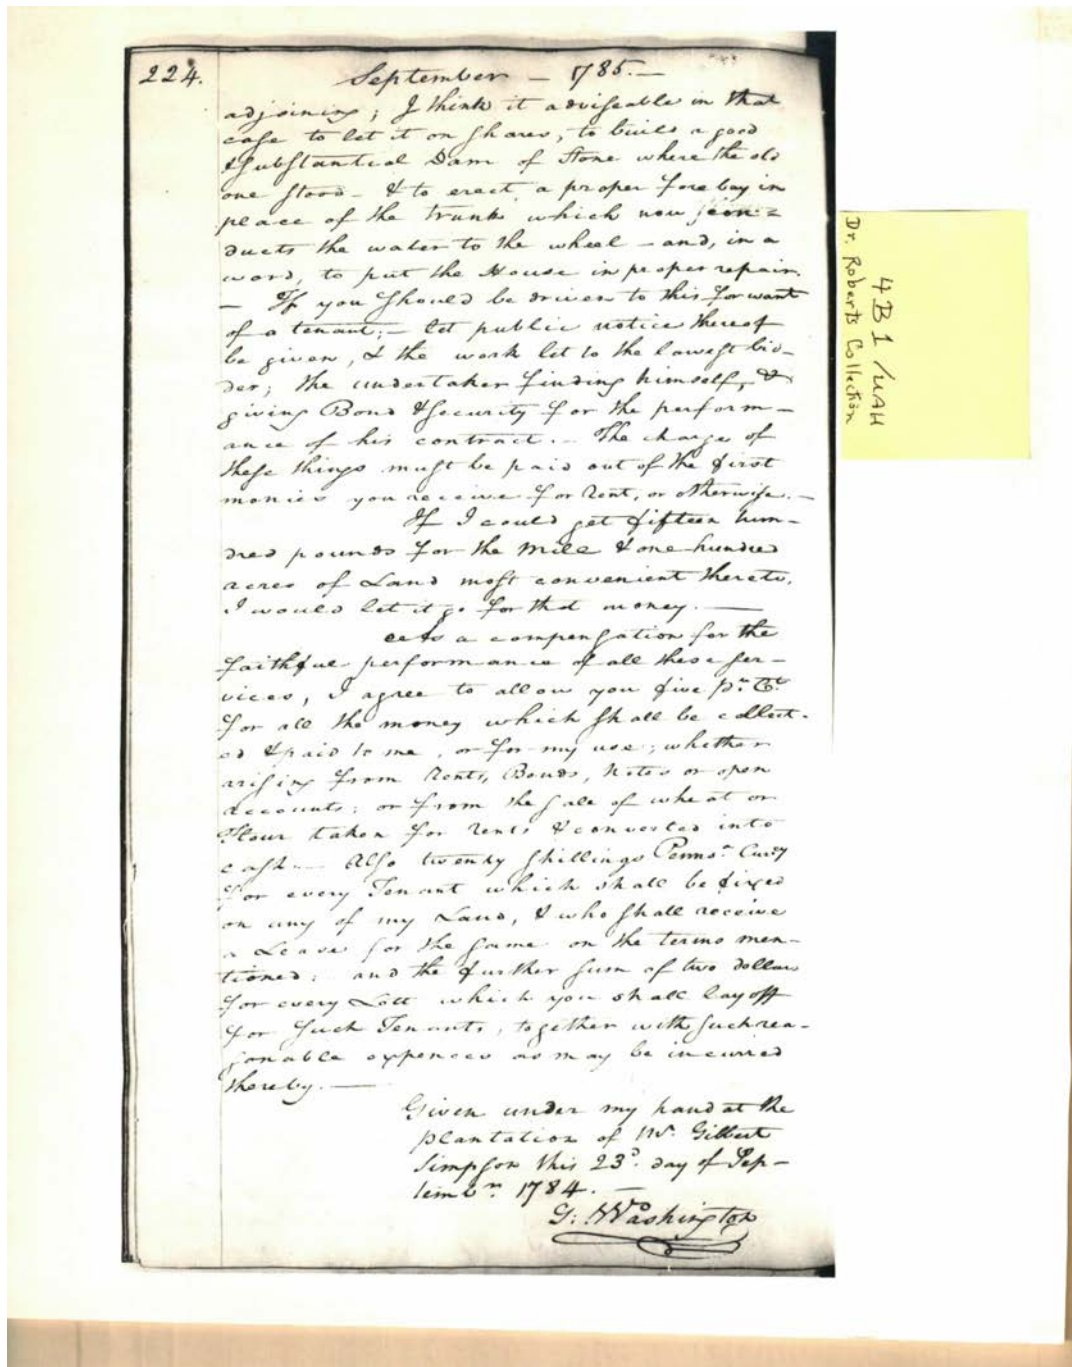 224.
September — 1785.—
adjoining; I think it adviseable in that
case to let it on shares, to build a good
& substantial Dam of Stone where the old
one stood — & to erect a proper forebay in
place of the trunk which now con=
ducts the water to the wheel — and, in a
word, to put the House in proper repair.
— If you should be driven to this for want
of a tenant; — let public notice thereof
be given, & the work let to the lowest bid–
der; the undertaker finding himself, &
giving Bond & security for the perform–
ance of his contract. — The charge of
these things must be paid out of the first
monies you receive for Rent, or otherwise. —
If I could get fifteen hun–
dred pounds for the Mill & one hundred
acres of Land most convenient thereto,
I would let it go for that money. —
As a compensation for the
faithful performance of all these ser–
vices, I agree to allow you five pr. Ct.
for all the money which shall be collect–
ed & paid to me, or for my use; whether
arising from Rents, Bonds, Notes or open
accounts: or from the sale of wheat or
Flour taken for rents & converted into
cash. — Also twenty shillings Pennsa. Curry
for every Tenant which shall be fixed
on any of my Land, & who shall receive
a Lease for the same on the terms men–
tioned: and the further sum of two dollars
for every Lott which you shall lay off
for such Tenants, together with such rea–
sonable expences as may be incurred
thereby. —
Given under my hand at the
plantation of Mr. Gilbert
Simpson this 23d. day of Sep–
tembr. 1784. —
G: Washington
4B1/UAH
Dr. Roberts Collection